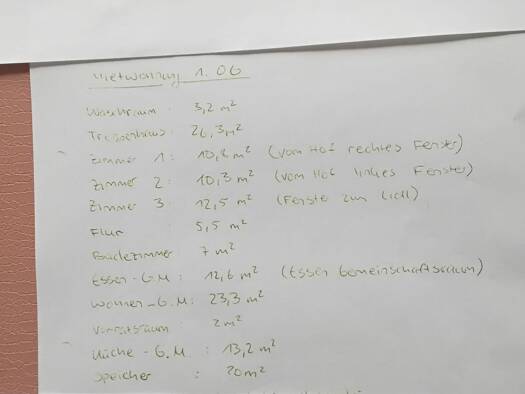 Mietwohnung 1. OG
Waschraum : 3,2 m²
Treppenhaus : 26,3 m²
Zimmer 1 : 10,2 m² (vom Hof rechtes Fenster)
Zimmer 2 : 10,3 m² (vom Hof linkes Fenster)
Zimmer 3 : 12,5 m² (Fenster zum Lidl)
Flur : 5,5 m²
Badezimmer 7 m²
Essen-G.M. : 12,6 m² (Essen Gemeinschaftsraum)
Wohnen-G.M. : 23,3 m²
Vorratsraum 2 m²
Küche - G.M. : 13,2 m²
Speicher : 20 m²